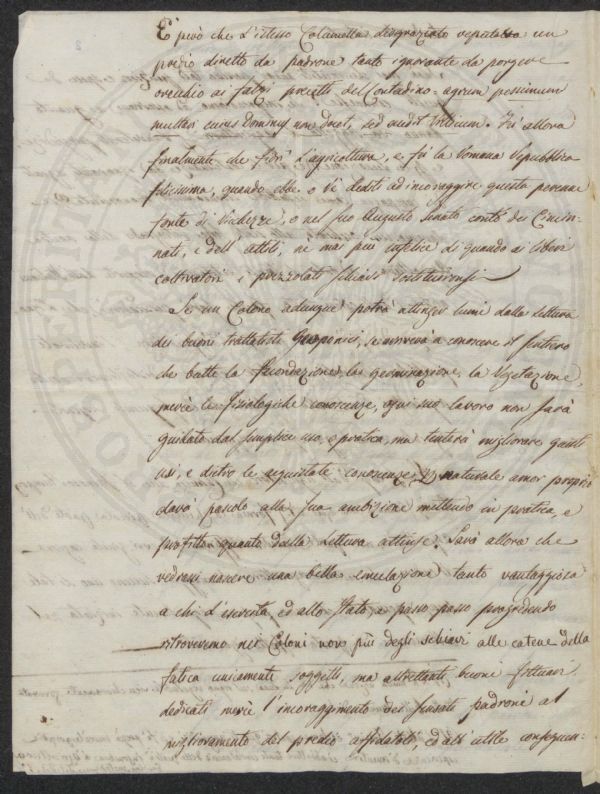 E però che l'istesso Columella disgraziato reputava un
predio diretto da padrone tanto ignorante da porgere
orecchio ai falzi precetti del Contadino = agrum pessimum
multari cuius Dominus non docet, sed audit Villicum. Fu allora
finalmente che fiorì l'agricoltura, e fù la Romana Repubblica
felicissima, quando ebbe o Rè dediti ad incoraggire questa perenne
fonte di Ricchezze, o nel suo Augusto Senato contò dei Cincin-
nati, e dell' Attilj, ne mai più infelice di quando ai liberi
coltivatori i prezzolati schiavi sostituironsi
Se un Colono adunque potrà attinger lumi dalla lettura
dei buoni trattatisti Geoponici, se arriverà a conoscere il sentiero
che batte la fecondazione, la germinazione, la Vegetazione,
mercè le fisiologiche conoscenze, ogni suo lavoro non sarà
guidato dal semplice uso, e pratica, ma tenterà migliorare questi
usi, e dietro le acquistate conoscenze, il naturale amor proprio
darà pascolo alla sua ambizione mettendo in pratica, e
profitto quanto dalla Lettura attinse. Sarà allora che
vedrassi nascere una bella emulazione tanto vantaggiosa
a chi l'esercita, ed allo stato, e passo passo progredendo
ritroveremo nei Coloni non più degli schiavi alle catene della
fatica unicamente soggetti, ma altrettanti buoni fattori
dedicati mercè l'incoraggimento dei sensati padroni al
miglioramento del predio affidatoli, ed all' utile conseguen-